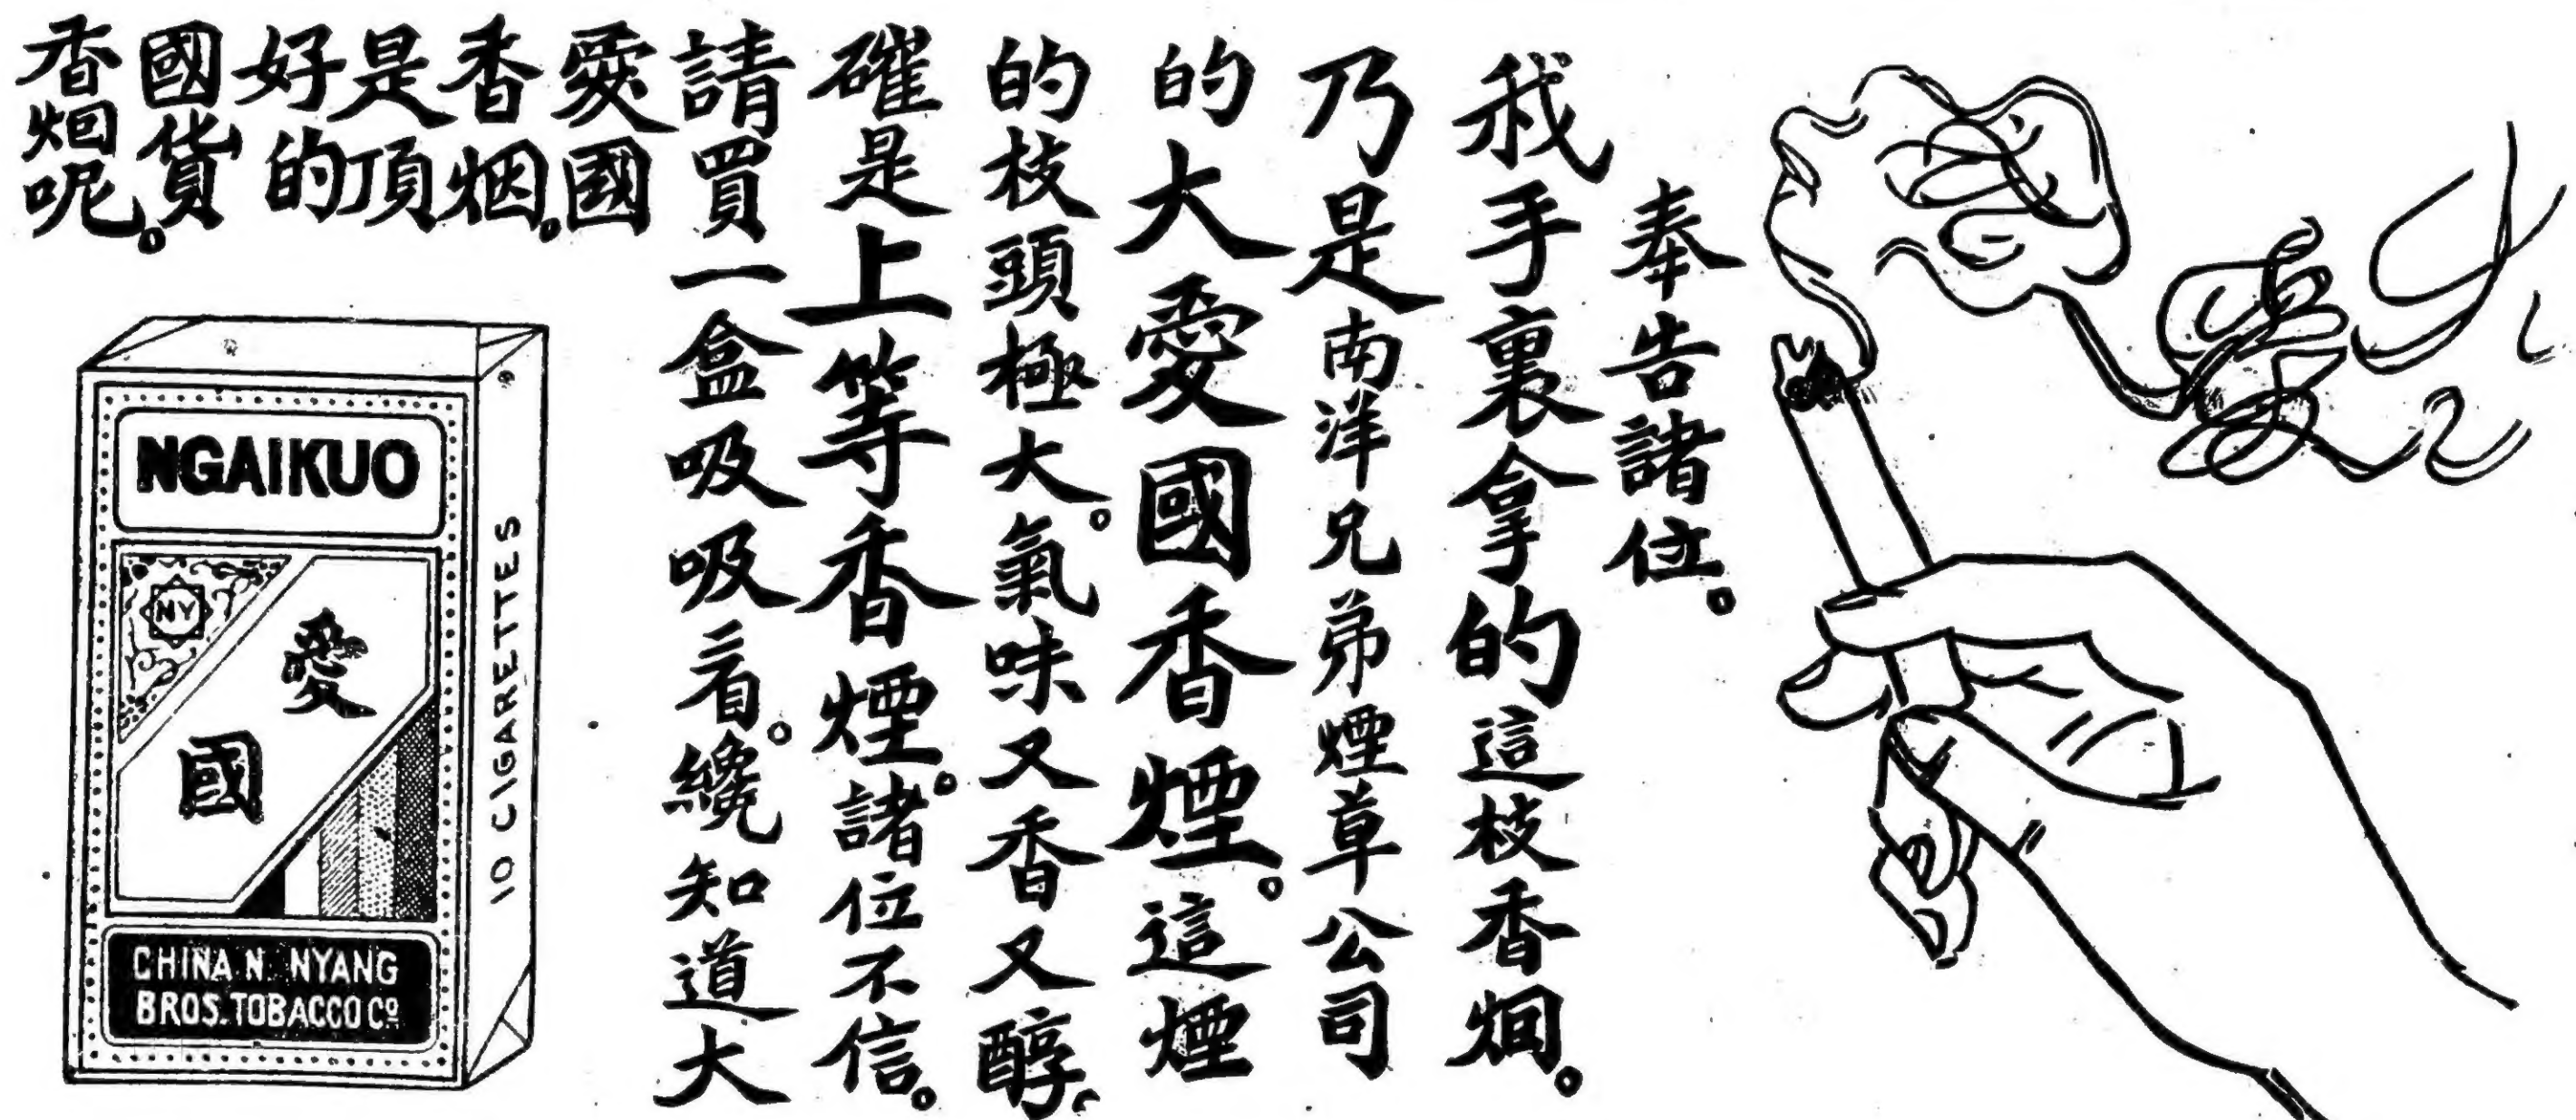 奉告諸位。
我手裏拿的這枝香烟。
乃是南洋兄弟煙草公司
的大愛國香煙。這煙
的枝頭極大。氣味又香又醇、
確是上等香煙。諸位不信。
請買一盒吸吸看。纔知道大
愛國
香烟。
是頂
好的
國貨
香烟呢。
NGAIKUO
NY
愛
國
10 CIGARETTES
CHINA N. NYANG
BROS. TOBACCO Cº